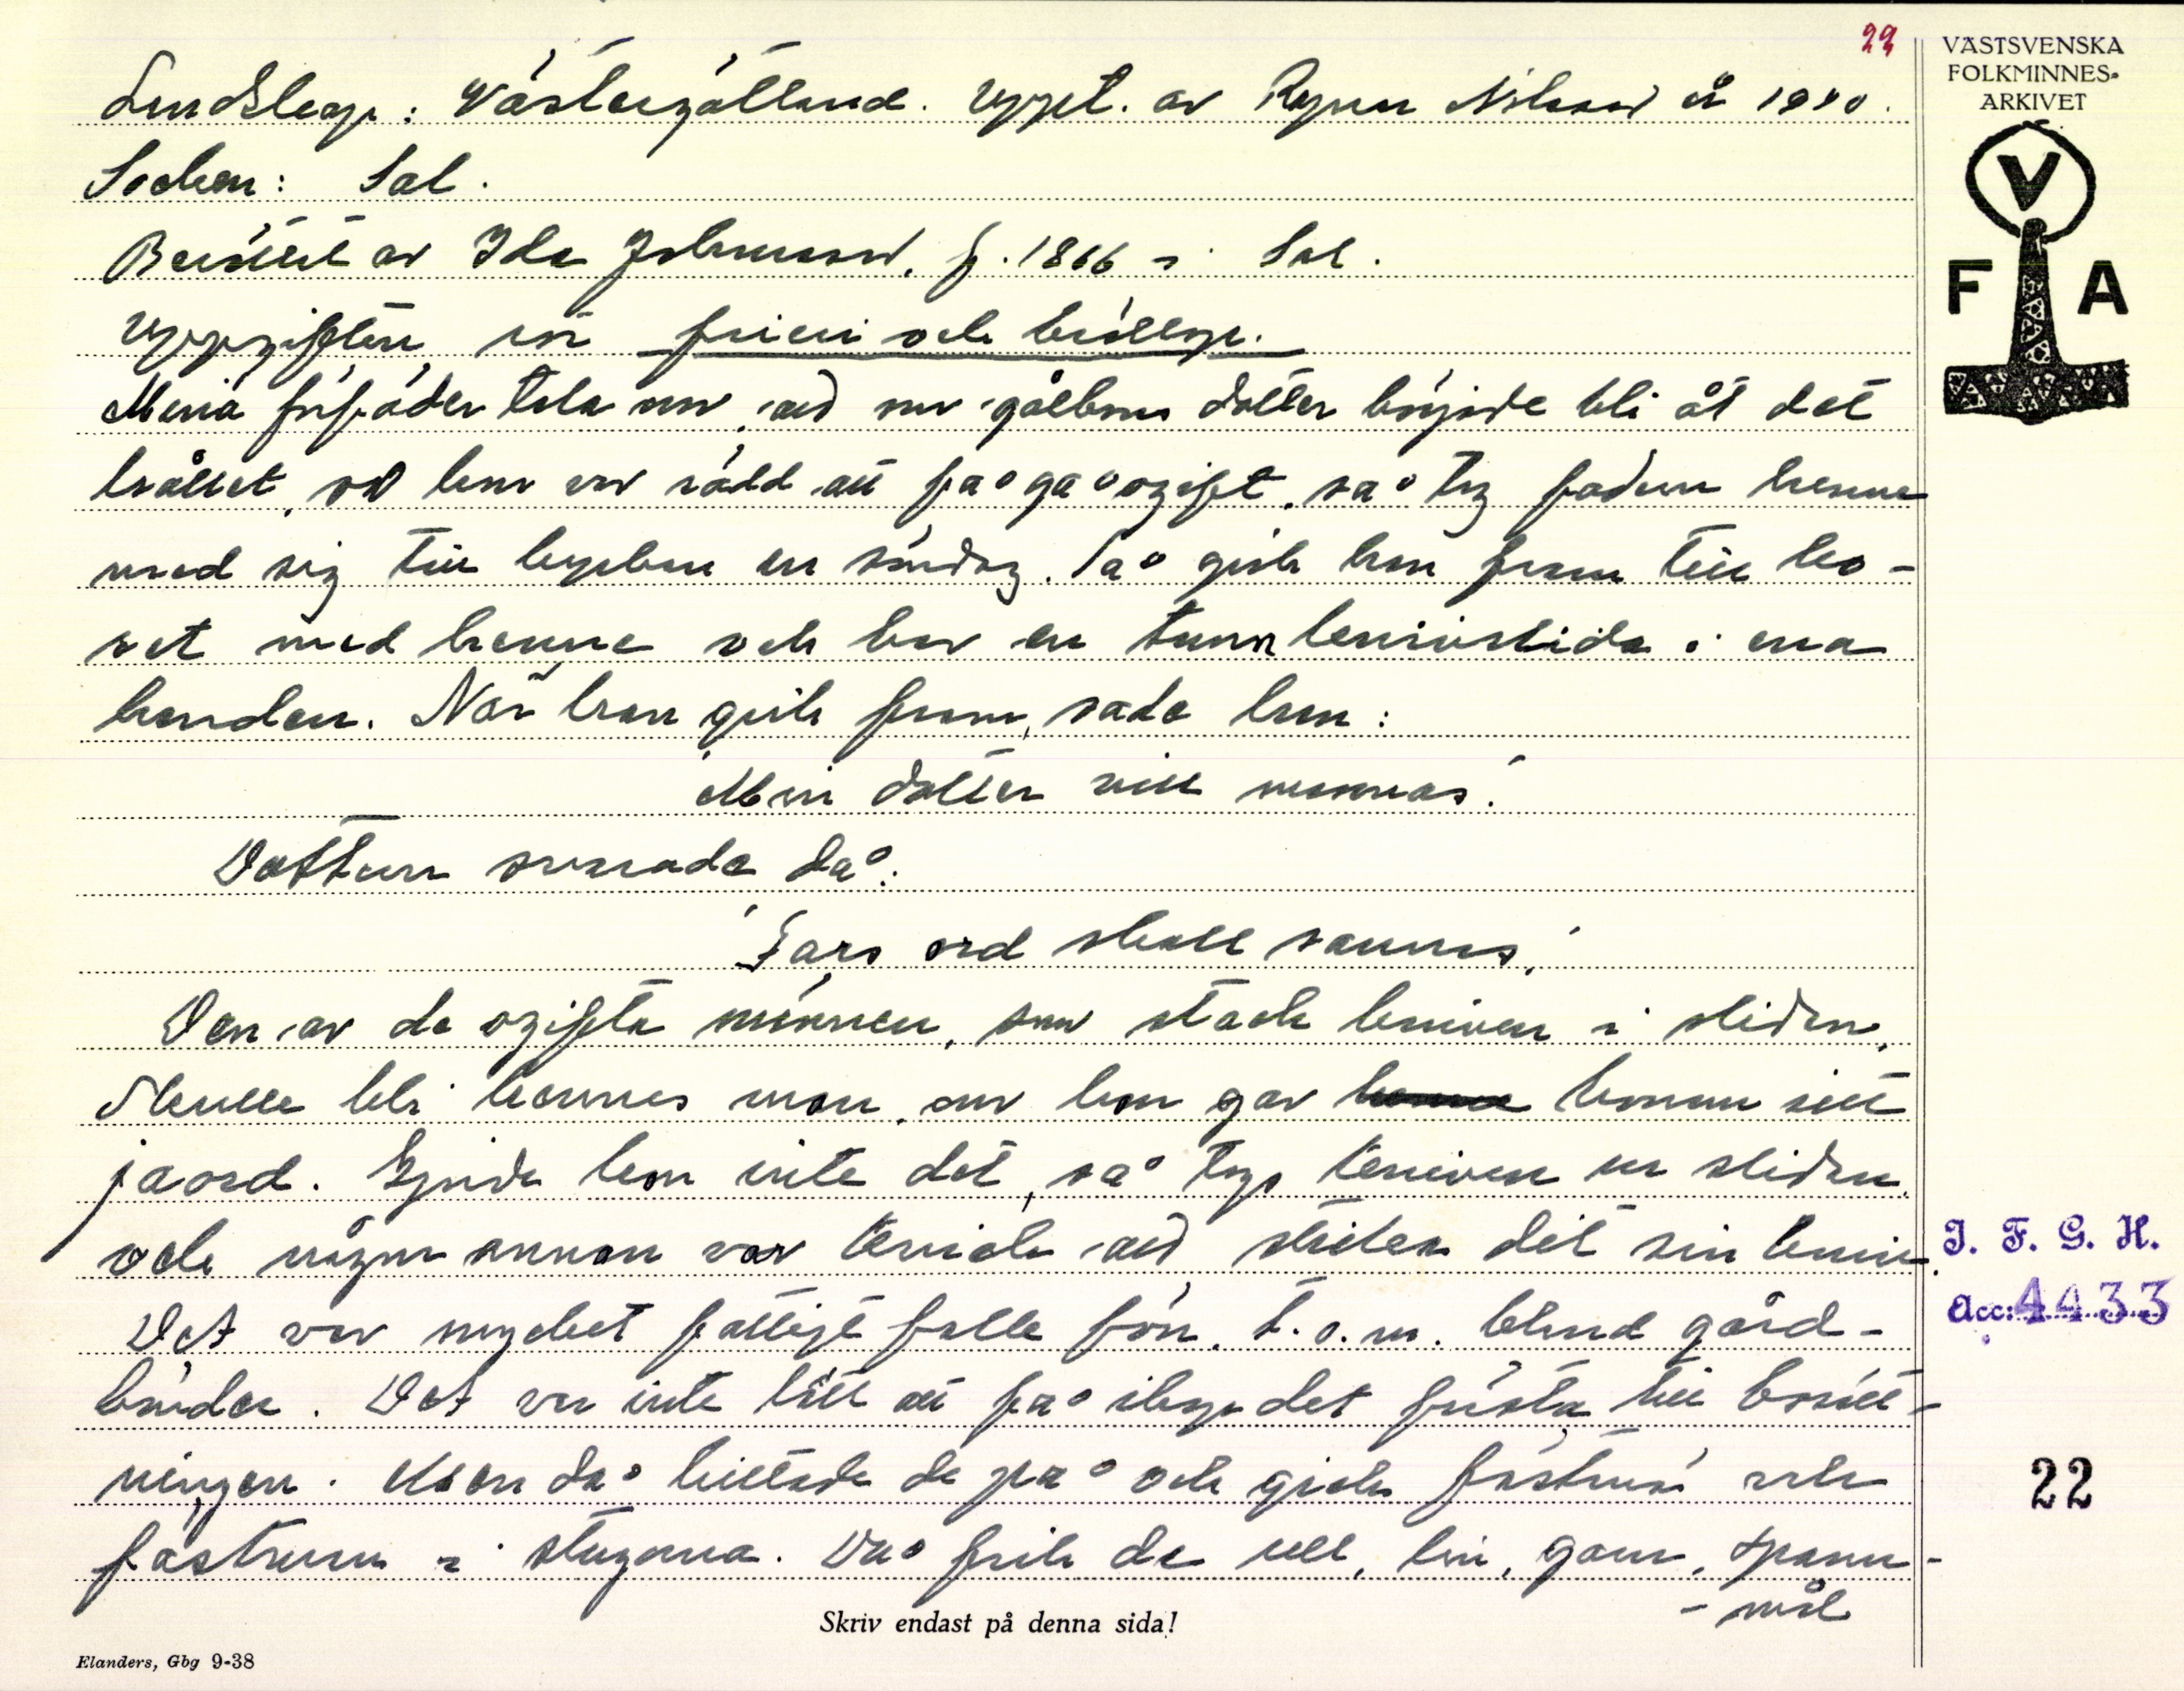 22
VÄSTSVENSKA
FOLKMINNES-
ARKIVET
V
F A
Landskap: Västergötland. Uppt. av Ragnar Nilsson år 1940.
Socken: Sal.
Berättat av Ida Johansson, f. 1866 i Sal.
Uppgifter om frieri och bröllop.
Mina förfäder tala om, att om gålbons dotter började bli åt det
hållet, att hon var rädd att få gå ogift, så tog fadern henne
med sig till kyrkan en söndag. Så gick han fram till ko-
ret med henne och bar en tunn knivslida i ena
handen. När han gick fram, sade han:
"Min dotter vill mannas."
Dottern svarade då:
"Fars ord skall sannas."
Den av de ogifta männen, som stack kniven i slidan,
skulle bli hennes man, om hon gav honom sitt
jaord. Gjorde hon inte det, så togs kniven ur slidan,
och någon annan var det sin kniv.
Det var mycket fattigt folk förr, t.o.m. bland gård-
bönder. Det var inte lätt att få ihop det första till bosätt-
ningen. Men då hittade de på och gick fästmö och
fästman i stugorna. Då fick de ull, lin, garn, spann-
- mål
J. F. G. H.
Acc: 4433
22
Skriv endast på denna sida!
Elanders, Gbg 9-38